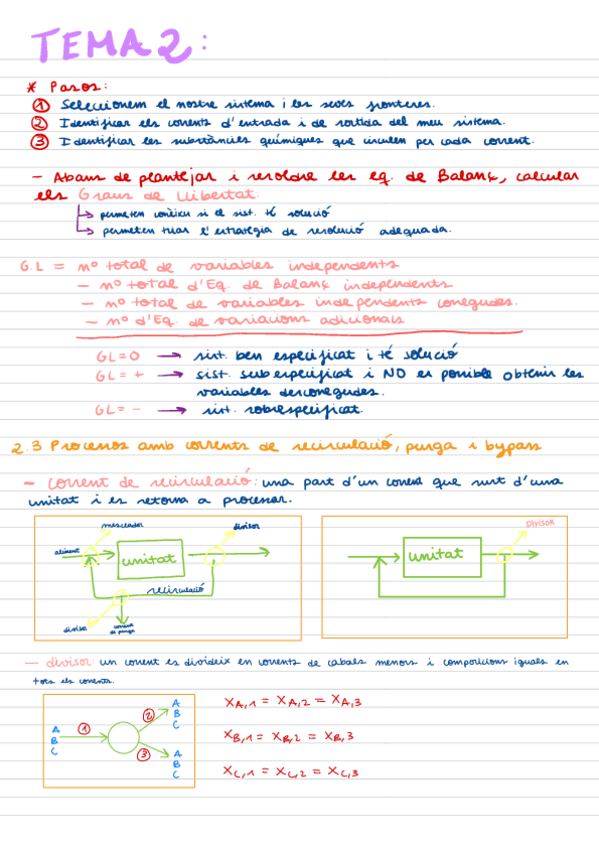 TEMA 2:
* Pasos:
① Seleccionem el nostre sistema i les seves fronteres.
② Identificar els corrents d'entrada i de sortida del meu sistema.
③ Identificar les substàncies químiques que circulen per cada corrent.
- Abans de plantejar i resoldre les eq. de Balanç, calcular
els Graus de Llibertat.
↳ permeten conèixer si el sist. té solució
↳ permeten triar l'estratègia de resolució adequada.
G.L = nº total de variables independents
- nº total d'Eq. de Balanç independents
- nº total de variables independents conegudes.
- nº d'Eq. de variacions adicionals
GL=0 → sist. ben especificat i té solució
GL= + → sist. subespecificat i NO es possible obtenir les
variables desconegudes.
GL= - → sist. sobrespecificat.
2.3 Processos amb corrents de recirculació, purga i bypass
- corrent de recirculació: una part d'un corrent que surt d'una
unitat i es retorna a processar.
mesclador
divisor
aliment
unitat
recirculació
divisor
corrent
de purga
Divisor
unitat
- divisor: un corrent es divideix en corrents de cabals menors i composicions iguals en
tots els corrents.
A
B
C
①
②
A
B
C
③
A
B
C
XA,1 = XA,2 = XA,3
XB,1 = XB,2 = XB,3
XC,1 = XC,2 = XC,3